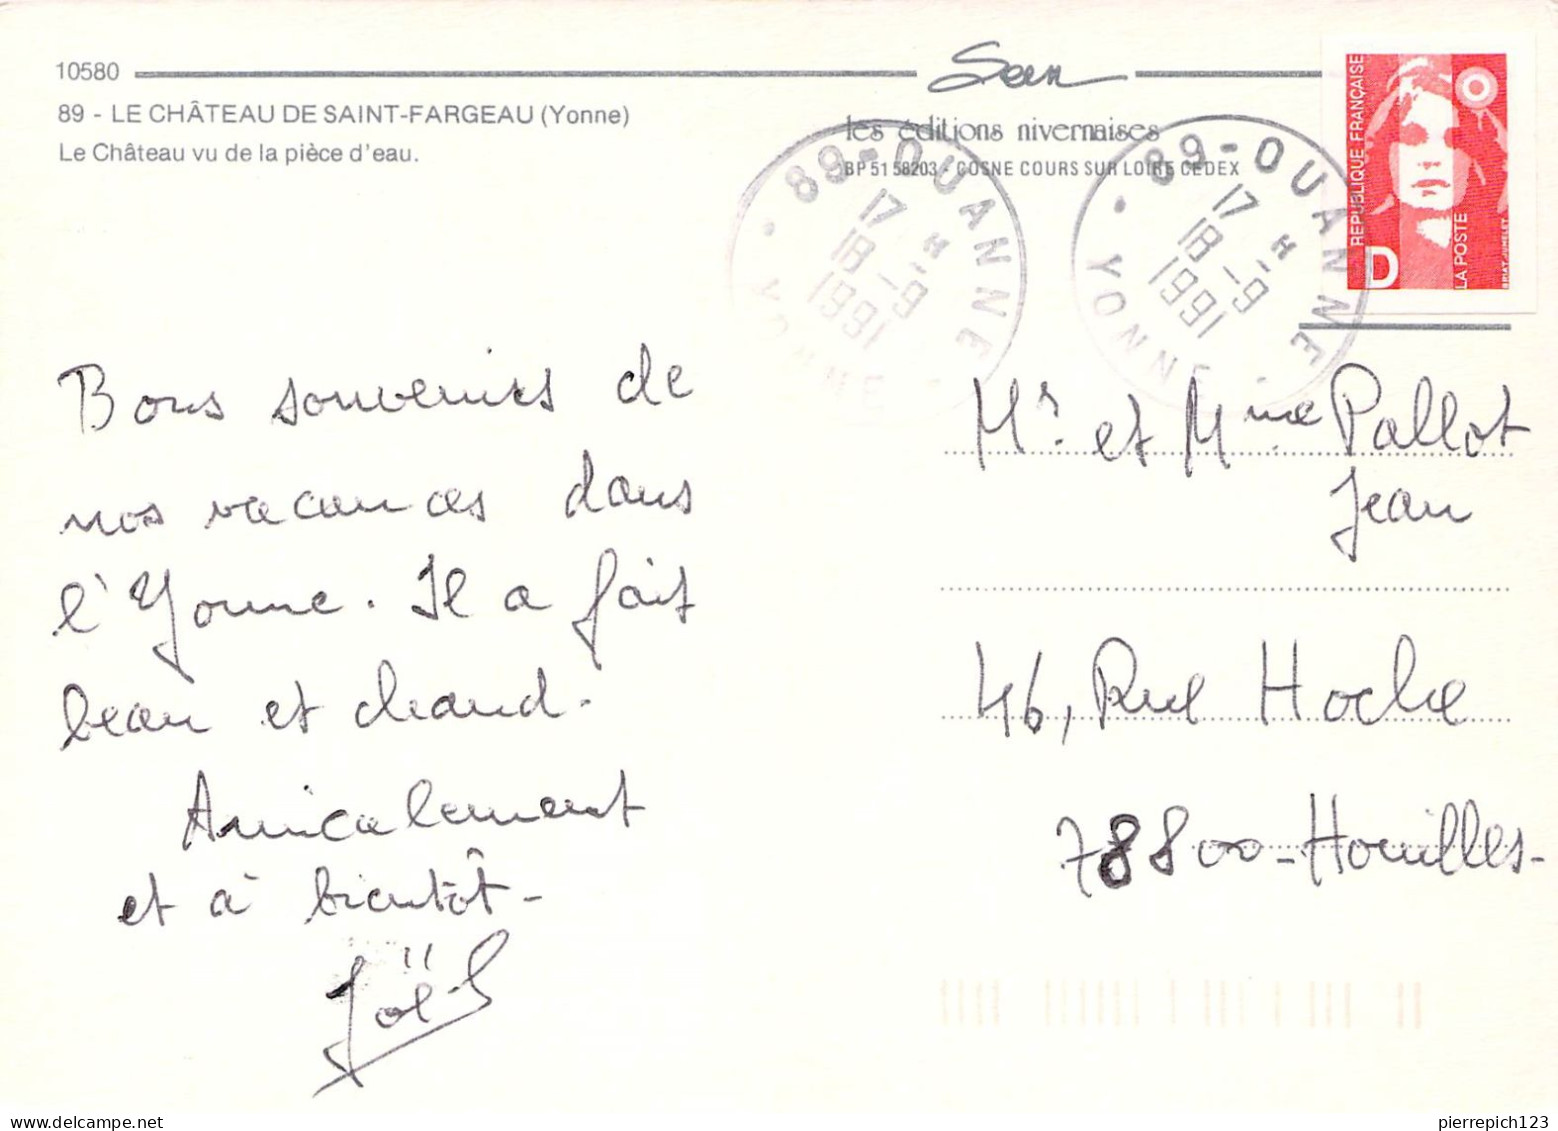 10580
Seen
89 - LE CHÂTEAU DE SAINT-FARGEAU (Yonne)
Le Château vu de la pièce d'eau.
les éditions nivernaises
BP 51 58203 - COSNE COURS SUR LOIRE CEDEX
89 - OUANNE
17 H
18 - 9
1991
YONNE
89 - OUANNE
17 H
18 - 9
1991
YONNE
REPUBLIQUE FRANÇAISE
D
LA POSTE
BRIAT-JUMELET
Bons souvenirs de
nos vacances dans
l'Yonne. Il a fait
beau et chaud.
Amicalement
et à bientôt -
Joël
Mr. et Mme Pallot
Jean
46, Rue Hoche
78800 - Houilles -
pierrepich123